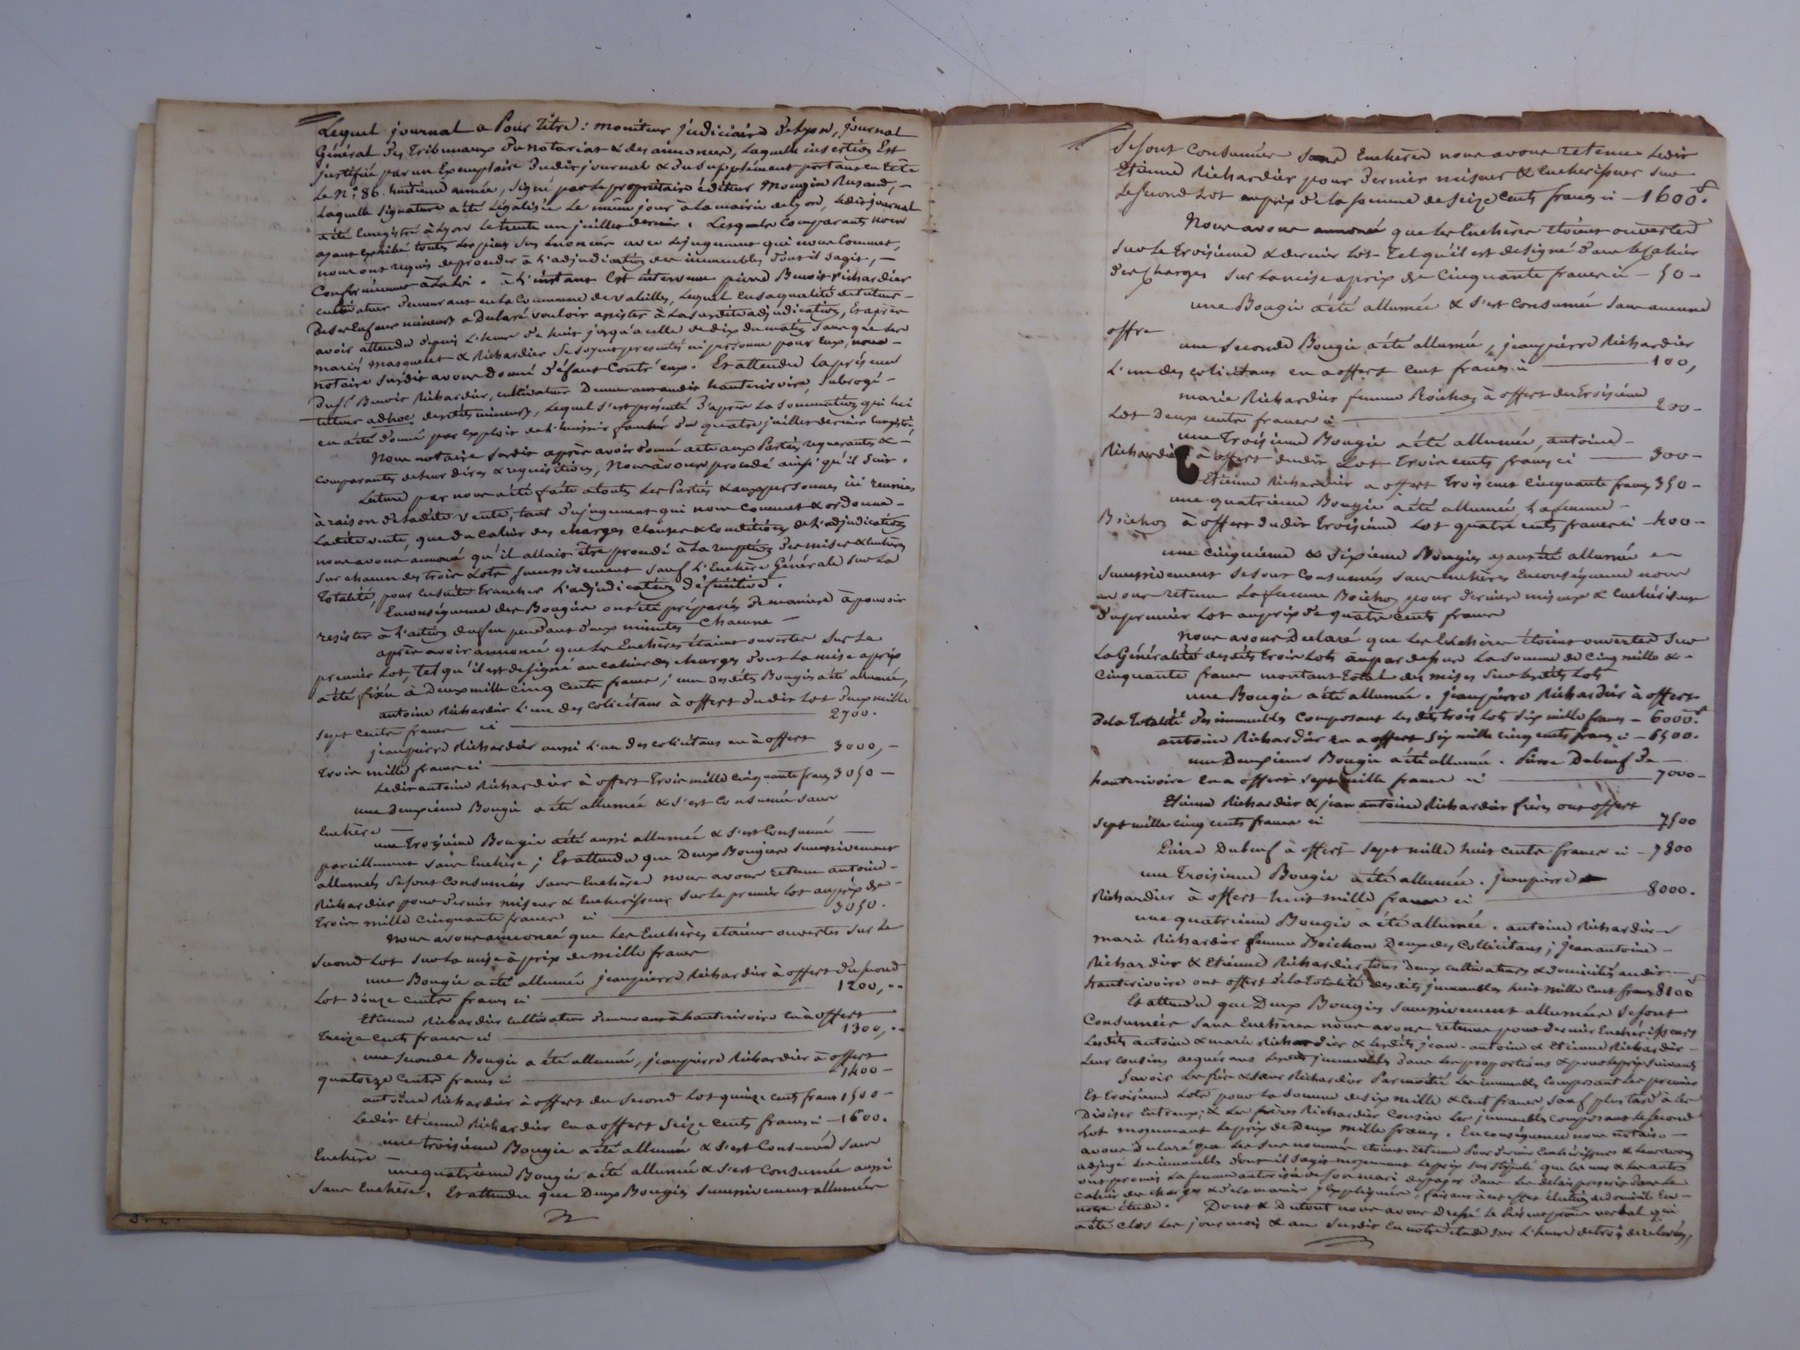 Lequel journal a Pour titre : moniteur judiciaire de Lyon, journal
Général des Tribunaux du notariat & des annonces, Laquelle insertion Est
justifiée par un Exemplaire dudit journal & du supplément portant en tête
Le N.º 86. huitième année, signé par le propriétaire éditeur Mougin Rusand, —
Laquelle signature a été Légalisée Le même jour à la mairie de Lyon, Ledit journal
a été Enregistré à Lyon Le trente un juillet dernier. Lesquels Comparants nous
ayant exhibé toutes Les pièces Sus Enoncées avec Le jugement qui nous Commet,
nous ont requis de procéder à L'adjudication des immeubles dont il s'agit, —
Conformément à La loi. à L'instant Est intervenu pierre Benoit Richardier
cultivateur demeurant en La Commune de valeilles, Lequel En sa qualité de tuteur —
De ses Enfans mineurs a Déclaré vouloir assister à La susdite adjudication, Et après
avoir attendu depuis L'heure de huit jusqu'à celle de dix du matin sans que Les
mariés masquelet & Richardier Se soyent presentés ni personne pour Eux, nous —
notaire susdit avons Donné défaut Contr'eux. Et attendu la présence
du S.r Benoit Richardier, cultivateur Demeurant audit hauterivoire, Subrogé —
tuteur adhoc desdits mineurs, Lequel s'est présenté d'après La Sommation qui lui
en a été donné par Exploit de L'huissier du quatre juillet dernier Enregistré,
Nous notaire Susdit après avoir donné acte aux Parties requerantes & —
comparantes de leur dires & requisitions, Nous avons procédé ainsi qu'il Suit.
Lecture par nous a été faite a toutes Les Parties & aux personnes ici reunies
à raison de Ladite vente, tant du jugement qui nous Commet & ordonne —
Ladite vente, que du Cahier des charges Clauses & Conditions de L'adjudication
nous avons annoncé qu'il allait être procédé à La reception des mises & Enchères
Sur chacun des trois Lots Successivement sauf L'Enchère Générale sur La
totalité, pour Ensuite trancher L'adjudication définitive.
En conséquence des Bougies ont été préparées de manière à pouvoir
resister à L'action du feu pendant deux minutes Chacune —
après avoir annoncé que Les Enchères étaient ouvertes Sur Le
premier Lot, tel qu'il est designé au cahier des charges dont La mise à prix
a été fixée à Deux mille cinq Cents francs, une desdites Bougies a été allumée,
antoine Richardier L'un des colicitans à offert dudit Lot Deux mille
sept cents francs ci — 2700.
jeanpierre Richardier aussi L'un des colicitans en à offert
trois mille francs ci — 3000, —
Ledit antoine Richardier à offert trois mille cinquante francs 3050 —
une Deuxième Bougie a été allumée & s'est Consumée sans
Enchère —
une troisième Bougie a été aussi allumée & s'est Consumée —
pareillement Sans Enchère ; Et attendu que Deux Bougies Successivement
allumées Se sont Consumées Sans Enchères nous avons retenu antoine —
Richardier pour Dernier miseur & Encherisseur Sur Le premier Lot au prix de —
trois mille Cinquante francs ci — 3050.
Nous avons annoncé que Les Enchères étaient ouvertes Sur Le
Second Lot Sur La mise à prix de mille francs
une Bougie a été allumée jeanpierre Richardier à offert du second
Lot douze Cents francs ci — 1200, --
Etienne Richardier cultivateur demeurant à hauterivoire en à offert
treize Cents francs ci — 1300, --
une Seconde Bougie a été allumée, jeanpierre Richardier à offert
quatorze Cents francs ci — 1400 —
antoine Richardier à offert du Second Lot quinze Cents francs 1500 —
Ledit Etienne Richardier en a offert Seize Cents francs ci — 1600.
une troisième Bougie a été allumée & s'est Consumée Sans
Enchère —
une quatrième Bougie a été allumée & s'est Consumée aussi
Sans Enchère. Et attendu que Deux Bougies Successivement allumées
Se sont Consumées Sans Enchères nous avons retenu Ledit
Etienne Richardier pour Dernier miseur & Encherisseur Sur
Le Second Lot au prix de La somme de Seize Cents francs ci — 1600.f
Nous avons annoncé que Les Enchères étoient ouvertes
Sur Le troisième & dernier Lot Tel qu'il est designé dans Le Cahier
des Charges Sur La mise à prix de Cinquante francs ci — 50 —
une Bougie a été allumée & s'est Consumée Sans aucune
offre
une Seconde Bougie a été allumée, jeanpierre Richardier
L'un des colicitans en a offert Cent francs ci — 100,
marie Richardier femme Boichon à offert du troisième
Lot Deux cents francs ci — 200 —
une troisième Bougie a été allumée, antoine —
Richardier à offert dudit Lot trois cents francs ci — 300 —
Etienne Richardier a offert trois cent Cinquante francs 350 —
une quatrième Bougie a été allumée La femme —
Boichon à offert dudit troisième Lot quatre cents francs ci — 400 —
une cinquième & Sixième Bougies ayant été allumées —
Successivement Se sont Consumées Sans Enchères En conséquence nous
avons retenu La femme Boichon pour Dernier miseur & Encherisseur
du premier Lot au prix de quatre Cents francs
Nous avons Declaré que Les Enchères étoient ouvertes Sur
La Généralité desdits trois Lots au par dessus La Somme de Cinq mille &
Cinquante francs montant total des mises Sur Lesdits Lots
une Bougie a été allumée. jeanpierre Richardier à offert
De la totalité des immeubles Composant Lesdits trois Lots Six mille francs — 6000.f
antoine Richardier en a offert Six mille cinq cents francs ci — 6500.
une Deuxième Bougie a été allumée. Pierre Dubeuf de —
hauterivoire en a offert Sept mille francs ci — 7000 —
Etienne Richardier & jean antoine Richardier frères ont offert
Sept mille cinq cents francs ci — 7500
Pierre Dubeuf à offert Sept mille huit cents francs ci — 7800
une troisième Bougie a été allumée. jeanpierre
Richardier à offert huit mille francs ci — 8000.
une quatrième Bougie a été allumée. antoine Richardier
marie Richardier femme Boichon Deux des Collicitans ; jean antoine —
Richardier & Etienne Richardier tous deux cultivateurs & domiciliés audit —
hauterivoire ont offert de la totalité desdits immeubles huit mille Cent francs 8100f
Et attendu que Deux Bougies Successivement allumées Se sont
Consumées Sans Enchères nous avons retenu pour dernier Encherisseurs
Lesdits antoine & marie Richardier & Lesdits jean-antoine & Etienne Richardier —
Leur cousins acquéreurs desdits immeubles dans Les proportions & pour Le prix Suivants
Savoir Les frère & sœur Richardier Par moitié Les immeubles Composant Les premier
Et troisième Lots pour La Somme de six mille & Cent francs Sauf plus tard à Les
Diviser Entreux ; & Les frères Richardier Cousins Les immeubles Composant Le Second
Lot moyennant Le prix de Deux mille francs. En conséquence nous notaire —
avons Declaré que Les Sus nommés étoient retenus Pour Dernier Encherisseurs & Leur avons
adjugé Les immeubles dont il s'agit moyennant Le prix sus stipulé que Les uns & Les autres
ont promis La femme autorisée de Son mari de payer dans Le delai prescrit dans Le
cahier des charges & de La manière y expliquée, faisant à cet effet élection de domicile En
notre étude. Dont & Du tout nous avons Dressé Le present procès verbal qui
a été clos Les jour mois & an Susdit En notre étude sur L'heure de trois de relevée,